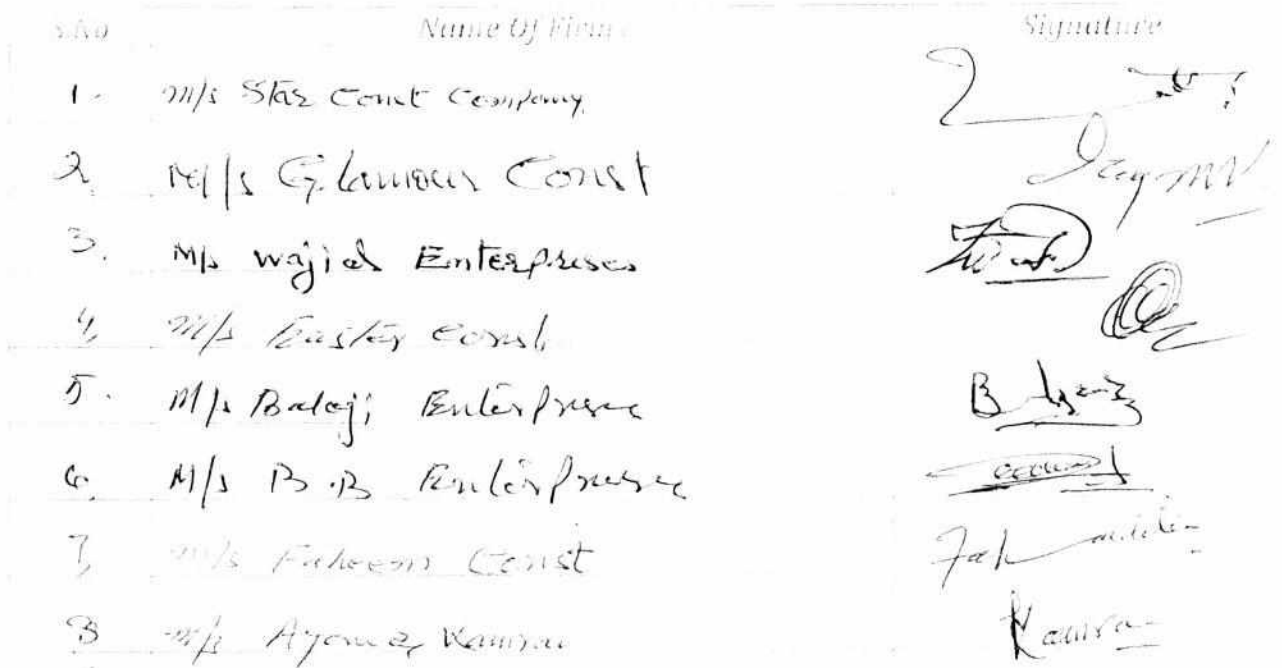 S.No Name Of Firms Signature
1. M/s Star Const Company.
2. M/s Glamour Const
3. M/s Wajid Enterprises
4. M/s Const
5. M/s Balaji Enterprises
6. M/s B.B Enterprises
7. M/s Faheem Const
8 M/s Kamran Kamran